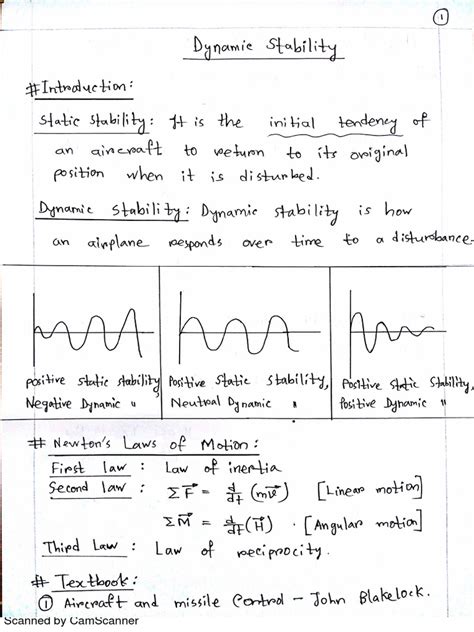 1
Dynamic Stability
# Introduction:
Static Stability: It is the initial tendency of
an aircraft to return to its original
position when it is disturbed.
Dynamic Stability: Dynamic stability is how
an airplane responds over time to a disturbance.
Positive static stability
Negative Dynamic "
Positive Static Stability,
Neutral Dynamic "
Positive Static Stability,
Positive Dynamic "
# Newton's Laws of Motion:
First law : Law of inertia
Second law : Σ F⃗ = d/dt (mv⃗) [Linear motion]
Σ M⃗ = d/dt (H⃗) . [Angular motion]
Third Law : Law of reciprocity.
# Textbook:
① Aircraft and missile Control - John Blakelock.
Scanned by CamScanner